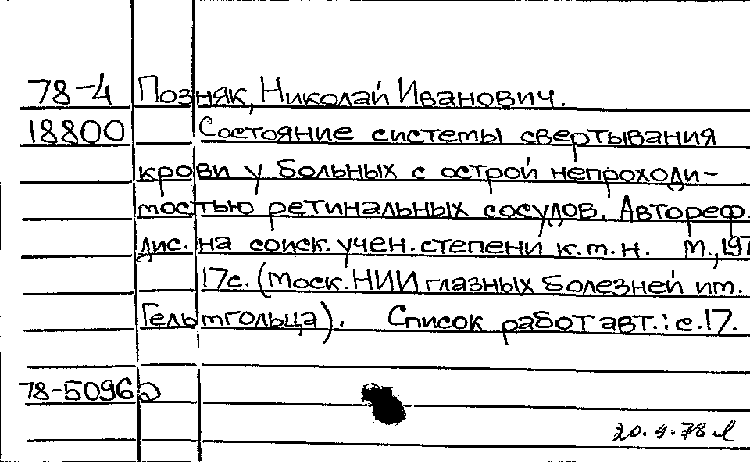 78-4 Позняк, Николай Иванович.
18800 Состояние системы свертывания
крови у больных с острой непроходи-
мостью ретинальных сосудов. Автореф.
дис. на соиск. учен. степени к.м.н. М., 197
17с. (Моск. НИИ глазных болезней им.
Гельмгольца). Список работ авт.: с. 17.
78-5096
20.4.78